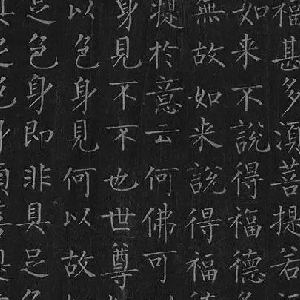 福甚多湏菩提若
如来不說得福德多
無故如来說得福德
提於意云何佛可
身見不不也世尊
以色身見何以故
足色身即非具足色
足色身